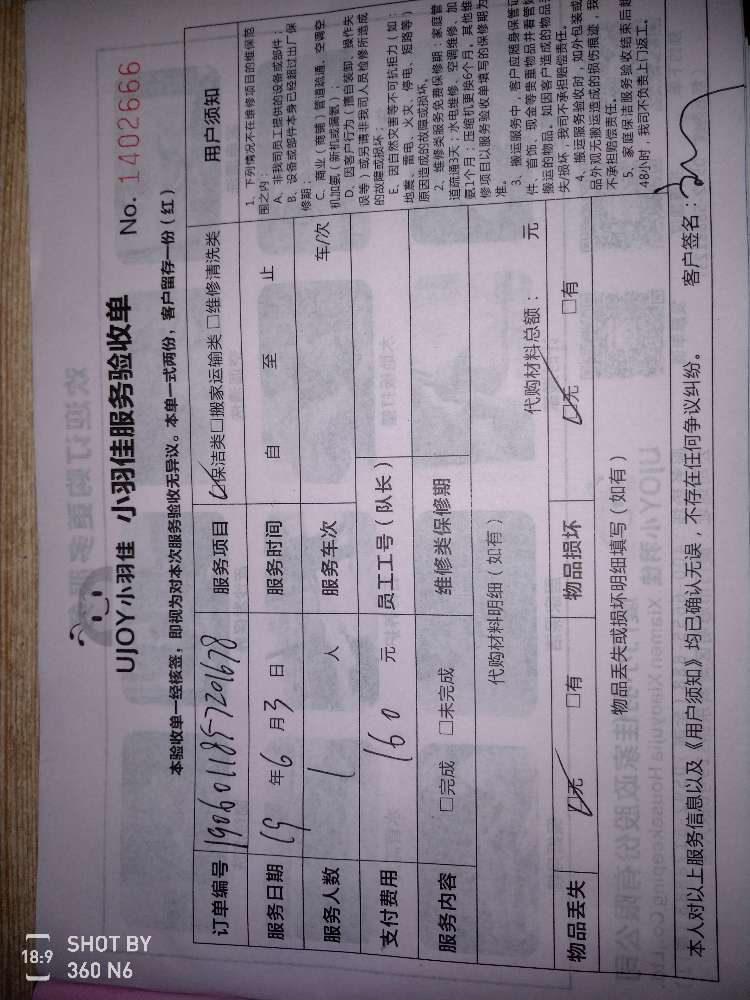 UJOY小羽佳 小羽佳服务验收单 No. 1402666
本验收单一经核签，即视为对本次服务验收无异议。本单一式两份，客户留存一份（红）
订单编号 1906011857201678 服务项目 保洁类□搬家运输类□维修清洗类
服务日期 19年6月3日 服务时间 自 至 止
服务人数 1 人 服务车次 车/次
支付费用 160 元 员工工号（队长）
服务内容 □完成 □未完成 维修类保修期
代购材料明细（如有） 代购材料总额： 元
物品丢失 无 □有 物品损坏 无 □有
物品丢失或损坏明细填写（如有）
用户须知
1、下列情况不在维修项目的维保范
围之内：
A、非我司员工提供的设备或部件；
B、设备或部件本身已经超过出厂保
修期；
C、商业（商铺）管道疏通、空调空
机加氨（新机或漏氨）；
D、因客户行为（擅自装卸、操作失
误等）或另请非我司人员检修所造成
的故障或损坏；
E、因自然灾害等不可抗拒力（如：
地震、雷电、火灾、停电、短路等）
原因造成的故障或损坏。
2、维修类服务免费保修期：家庭管
道疏通3天；水电维修、空调维修、加
更1个月；压缩机更换6个月。其他维
修项目以服务验收单填写的保修期为
准。
3、搬运服务中，客户应随身保管证
件、首饰、现金等贵重物品并看管好
搬运的物品，如因客户造成的物品丢
失/损坏，我司不承担赔偿责任。
4、搬运服务验收时，如外包装或
品外观无搬运造成的损伤痕迹，我
不承担赔偿责任。
5、家庭保洁服务验收结束后超
48小时，我司不负责上门返工。
本人对以上服务信息以及《用户须知》均已确认无误，不存在任何争议纠纷。 客户签名：
18:9 SHOT BY
360 N6